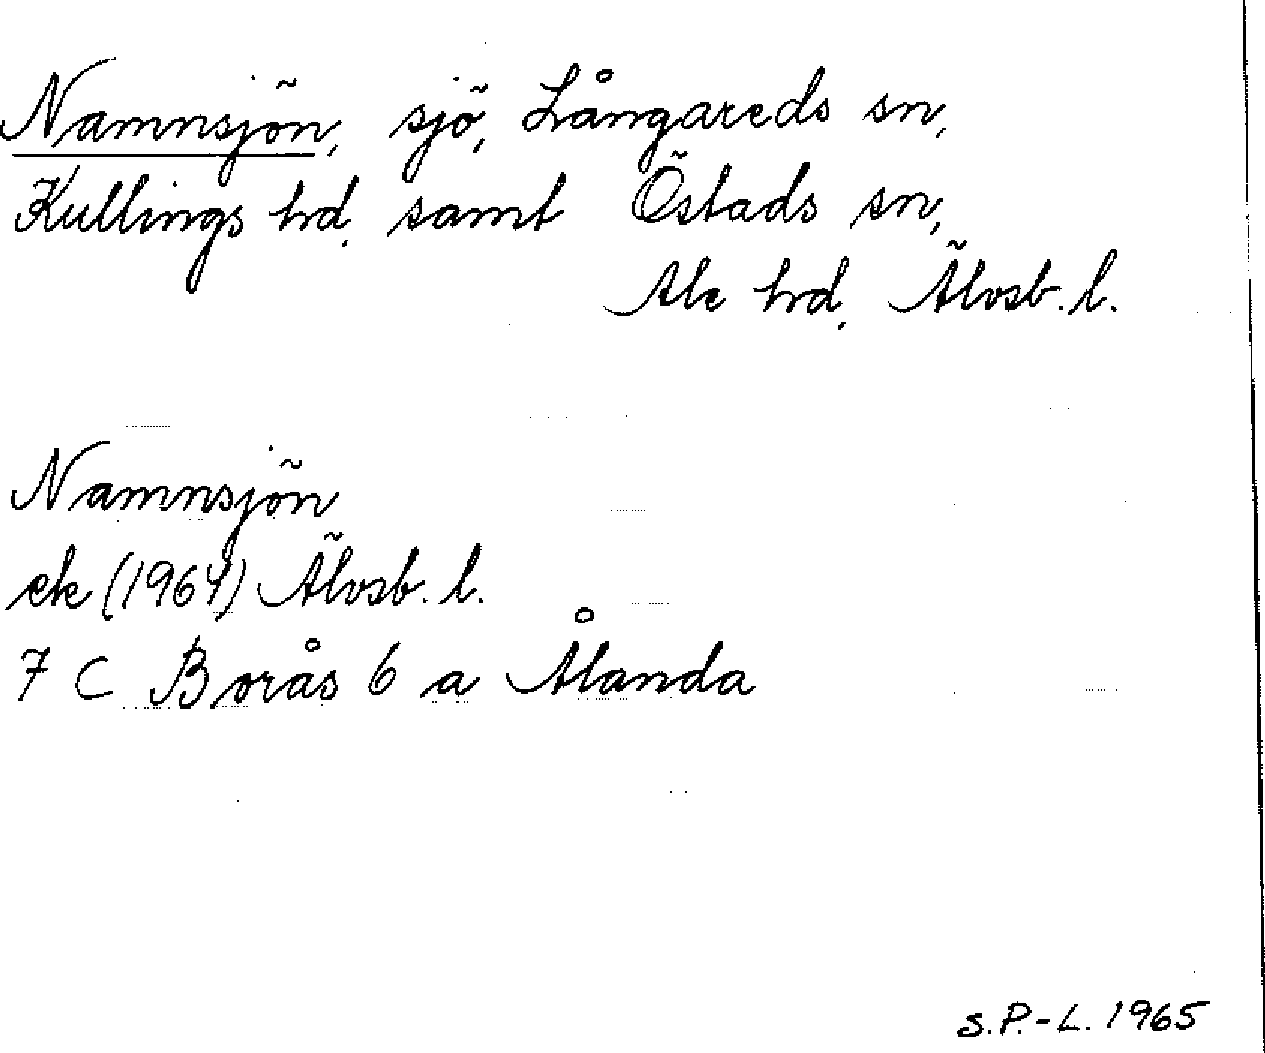 Namnsjön, sjö, Långareds sn,
Kullings hd, samt Östads sn,
Ale hd, Älvsb. l.
Namnsjön
ek (1964) Älvsb. l.
7 C Borås 6 a Ålanda
S.P.-L. 1965